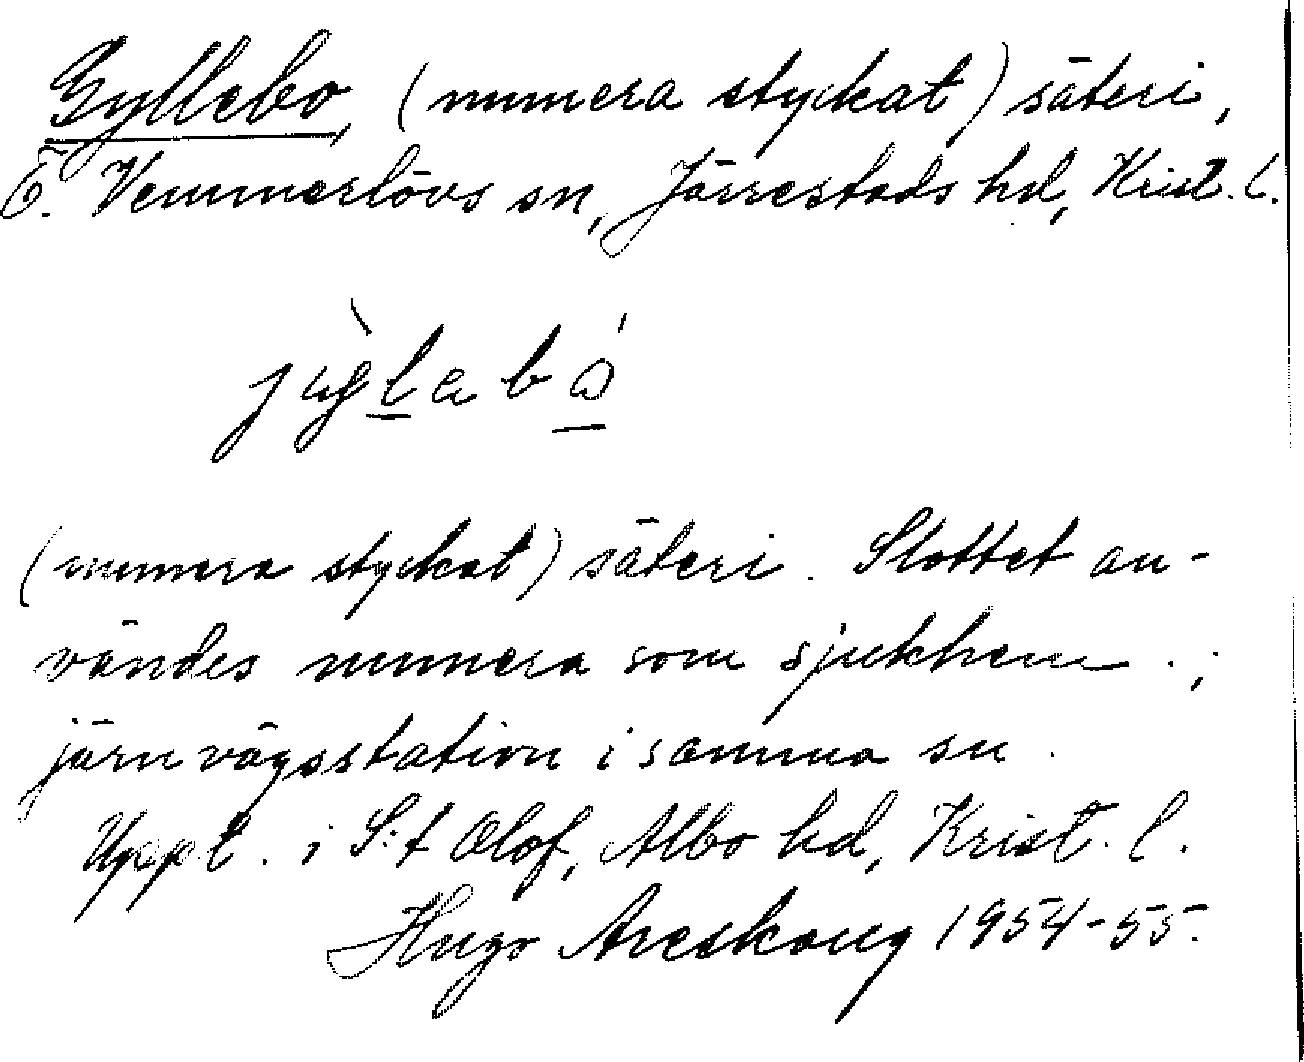 Gyllebo, (numera styckat) säteri,
Ö. Vemmerlövs sn, Järrestads hd, Krist. l.
(numera styckat) säteri. Slottet an-
vändes numera som sjukhem.;
järnvägsstation i samma sn.
Uppt. i S:t Olof, Albo hd, Krist. l.
Hugo Areskoug 1954-55.